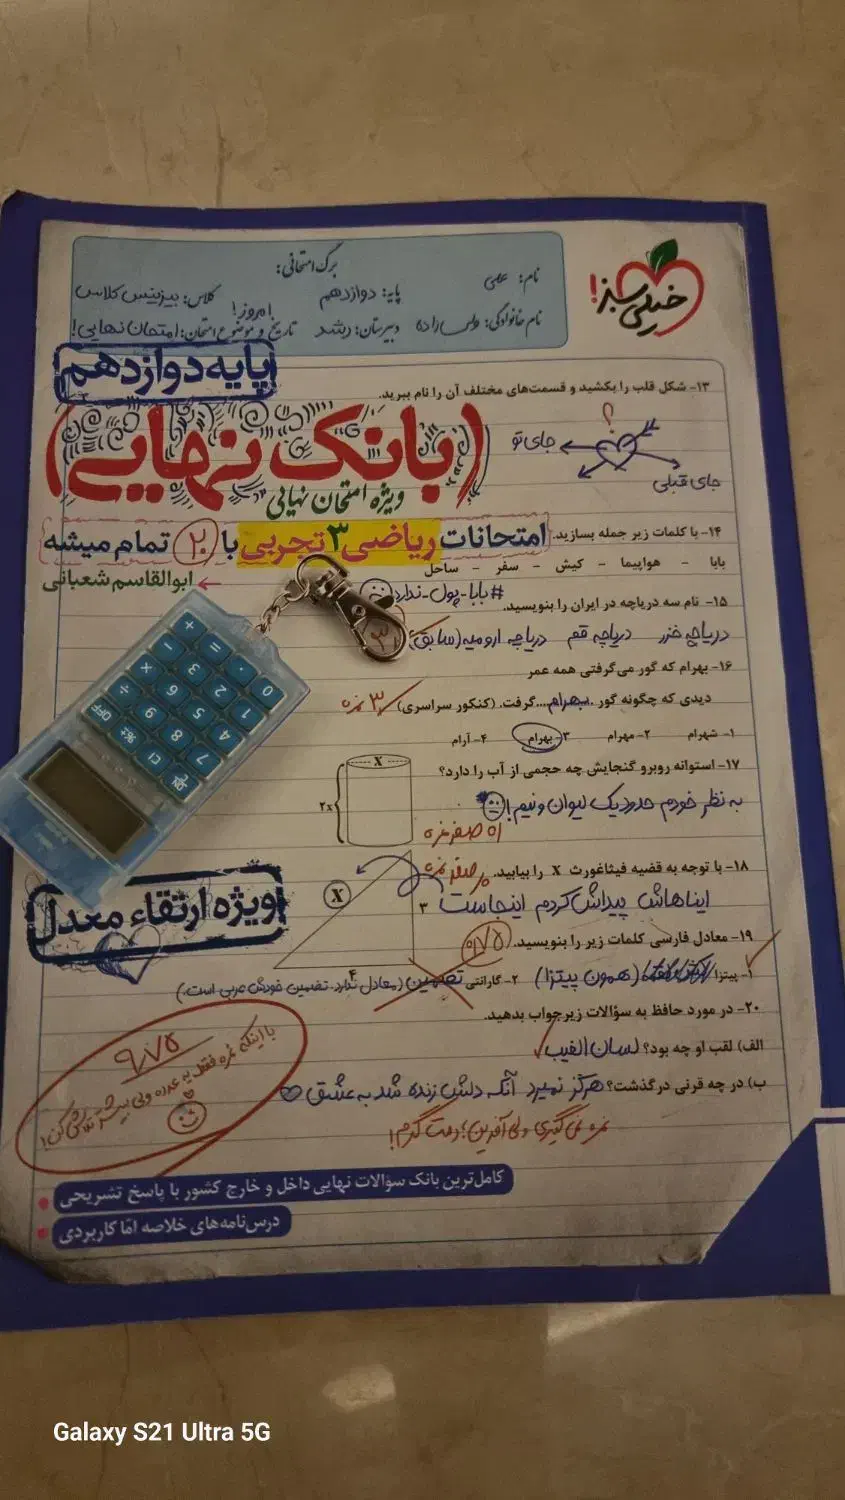 خیلی سبز!
برگ امتحانی:
نام: علی
پایه: دوازدهم
کلاس: بیزینس کلاس
نام خانوادگی:
دبیرستان: رشد
تاریخ و موضوع امتحان: امروز! امتحان نهایی!
پایه دوازدهم
۱۳- شکل قلب را بکشید و قسمت‌های مختلف آن را نام ببرید.
؟
جای تو
جای قبلی
(بانک نهایی)
ویژه امتحان نهایی
امتحانات ریاضی ۳ تجربی با ۲۰ تمام میشه
ابوالقاسم شعبانی
۱۴- با کلمات زیر جمله بسازید.
بابا - هواپیما - کیش - سفر - ساحل
#بابا-پول-ندارد
۱۵- نام سه دریاچه در ایران را بنویسید.
دریاچه خزر دریاچه قم دریاچه ارومیه (سابق)
۳
۱۶- بهرام که گور می‌گرفتی همه عمر
دیدی که چگونه گور ..بهرام....گرفت. (کنکور سراسری)
۳ نمره
۱- شهرام ۲- مهرام ۳- بهرام ۴- آرام
۱۷- استوانه روبرو گنجایش چه حجمی از آب را دارد؟
X
۲x
به نظر خودم حدود یک لیوان و نیم!
اه صفر نمره
۱۸- با توجه به قضیه فیثاغورث X را بیابید.
صفر نمره
X
۳
۴
ایناهاش پیداش کردم اینجاست
ویژه ارتقاء معدل
۱۹- معادل فارسی کلمات زیر را بنویسید.
۰/۷۵
۱- پیتزا (همون پیتزا) ۲- گارانتی تضمین (معادل ندارد. تضمین خودش عربی است.)
۲۰- در مورد حافظ به سؤالات زیر جواب بدهید.
الف) لقب او چه بود؟ لسان الغیب
ب) در چه قرنی درگذشت؟ هرگز نمیرد آنکه دلش زنده شد به عشق
نمره نمی‌گیری ولی آفرین! دمت گرم!
۹/۷۵
با اینکه نمره فقط یه عدده ولی بیشتر تلاش کن!
کامل‌ترین بانک سؤالات نهایی داخل و خارج کشور با پاسخ تشریحی
درس‌نامه‌های خلاصه اما کاربردی
0 1 4 7
. 2 5 8 C
= 3 6 9 %
+ - × ÷ OFF
Galaxy S21 Ultra 5G